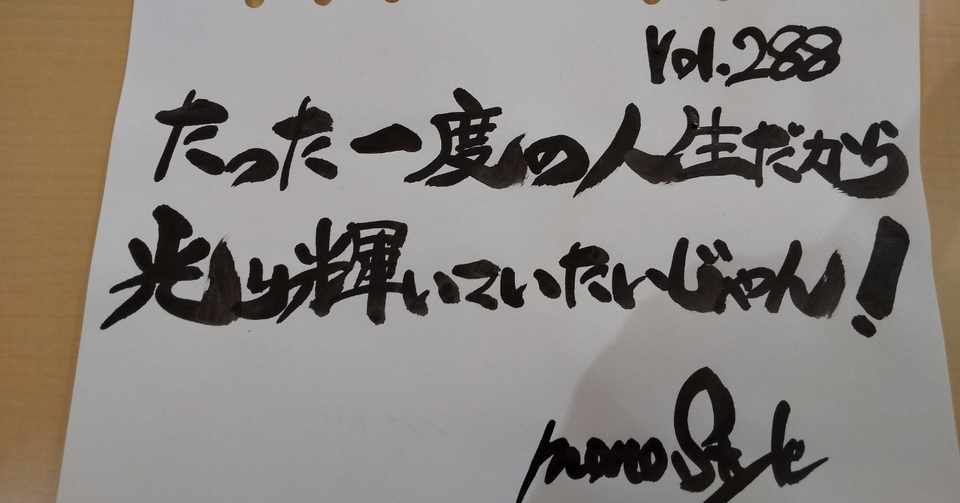 Vol.288
たった一度の人生だから
光り輝いていたいじゃん!
momo Style